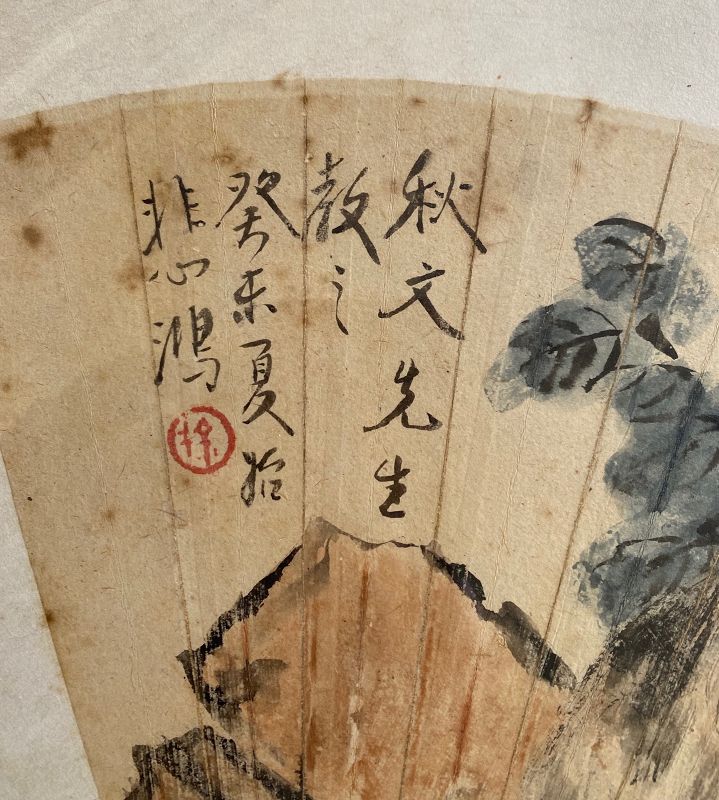 秋文先生
教之
癸未夏始
悲鴻
徐